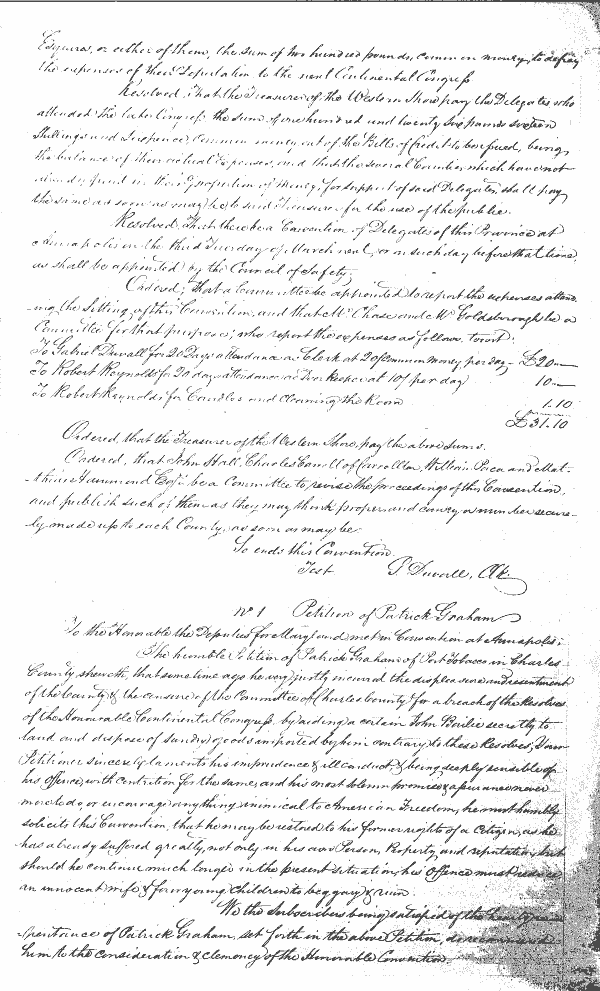 Esquires, or either of them, the sum of two hundred pounds, common money, to defray
the expenses of their Deputation to the next Continental Congress
Resolved, That the Treasurer of the Western Shore pay the Delegates who
attended the late Congress the sum of one hundred and twenty six pounds sixteen
Shillings and Sixpence, common money out of the Bills of Credit to be issued, being
the balance of their actual Expenses, and that the several Counties which have not
already paid in their proportion of Money, for support of said Delegates, shall pay
the same as soon as may be to said Treasurer for the use of the public.
Resolved, That there be a Convention of Delegates of this Province at
Annapolis on the third Tuesday of March next, or on such day before that time,
as shall be appointed by the Council of Safety.
Ordered, That a Committee be appointed to report the expenses attend
-ing the Sitting of this Convention, and that Mr Chase and Mr Goldsborough be a
Committee for that purpose; who report the expenses as follows, towit:
To Gabriel Duvall for 20 Days attendance as Clerk at 20/ common money per day £20 —
To Robert Reynolds for 20 days attendance as Door keeper at 10/ per day 10 —
To Robert Reynolds for Candles and cleaning the Room 1.10
£31.10
Ordered, that the Treasurer of the Western Shore, pay the above Sums.
Ordered, that John Hall, Charles Carroll of Carrollton, William Paca and Mat-
-thias Hammond Esqrs. be a Committee to revise the proceedings of this Convention,
and publish such of them as they may think proper and convey a number secure-
ly made up to each County, as soon as may be.
So ends this Convention.
Test G Duvall, Clk.
No 1 Petition of Patrick Graham
To the Honorable the Deputies for Maryland met in Convention at Annapolis;
The humble Petition of Patrick Graham of Port Tobacco in Charles
County sheweth, that some time ago he very justly incured the displeasure and resentment
of the County & the censure of the Committee of Charles County for a breach of the Resolves
of the Honorable Continental Congress, by aiding a certain John Bailie secretly to
land and dispose of sundry goods imported by him contrary to these Resolves, Your
Petitioner sincerely laments his imprudence & ill conduct, & being deeply sensible of
his Offence, with contrition for the same, and his most solemn promise & assurance never
more to do, or encourage any thing inimical to American Freedom, he most humbly
solicits this Convention, that he may be restored to his former rights of a Citizen, as he
has already suffered greatly, not only in his own Person, Property and reputation, but
should he continue much longer in the present situation, his Offence must reduce
an innocent wife & four young Children to beggary & ruin.
We the Subscribers being satisfied of the
-pentance of Patrick Graham, set forth in the above Petition, do recommend
him to the consideration & clemency of the Honorable Convention.